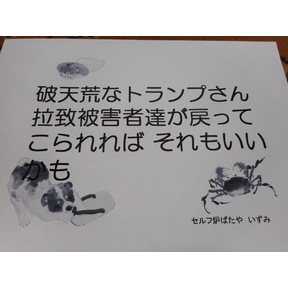 破天荒なトランプさん
拉致被害者達が戻って
こられれば それもいい
かも
セルフ炉ばたや いずみ